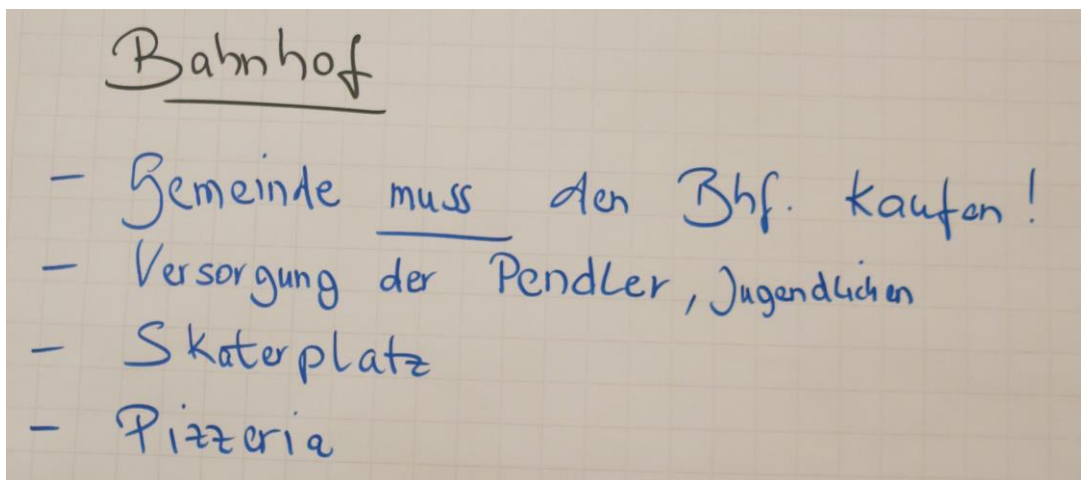 Bahnhof
- Gemeinde muss den Bhf. kaufen!
- Versorgung der Pendler, Jugendlichen
- Skaterplatz
- Pizzeria